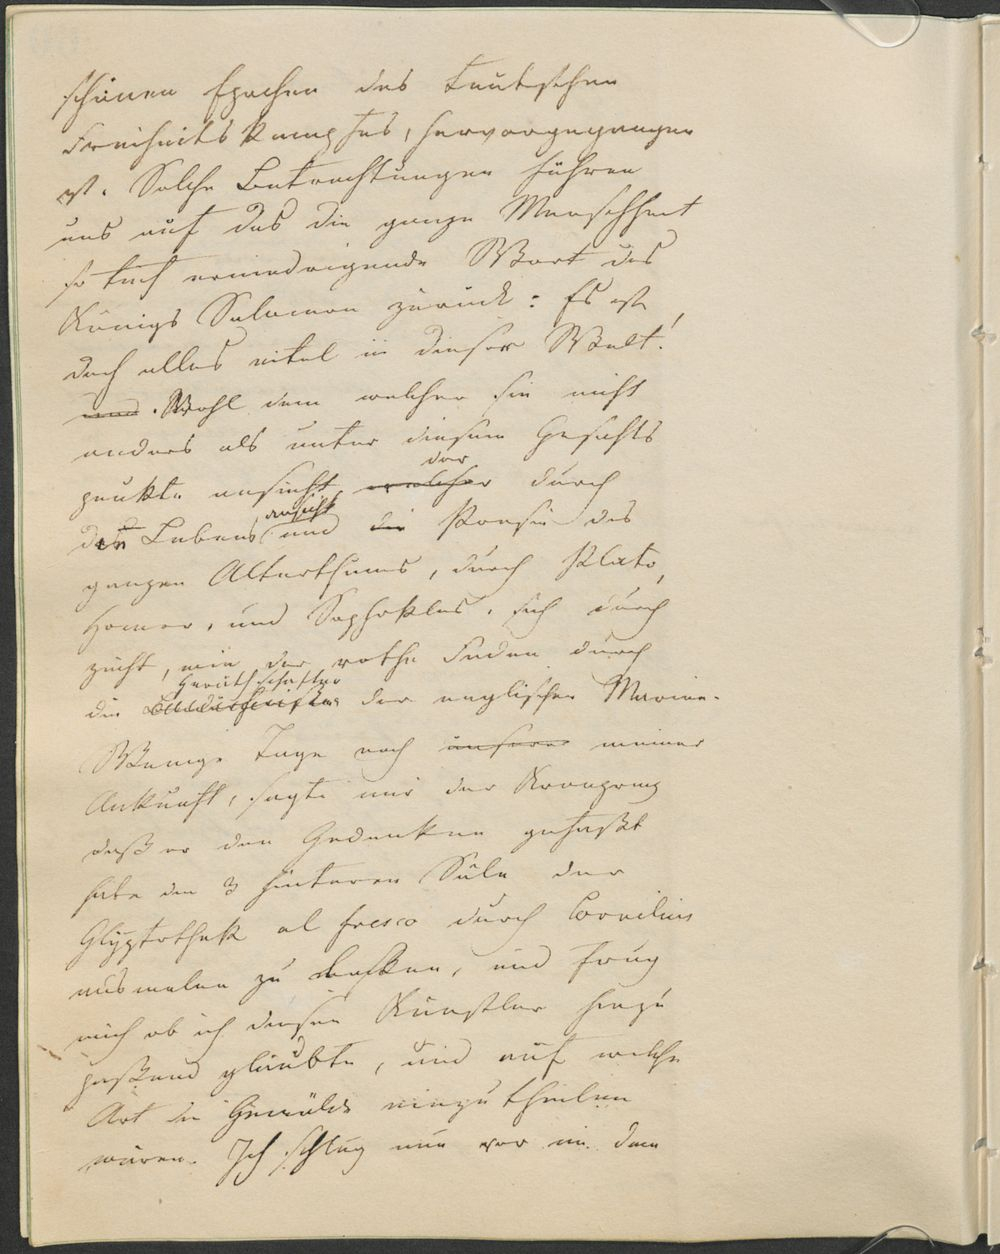 schönen Epochen des Teutschen
Freiheits Kampfes, hervorgegangen
ist. Solche Betrachtungen führen
uns auf das die ganze Menschheit
so tief erniedrigende Wort des
Königs Salomon zurück: Es ist
doch alles eitel in dieser Welt!
und. Wohl dem welcher sie nicht
anders als unter diesem Gesichts
punkte ansieht welcher der durch
des Lebens ansicht und die Poesie des
ganzen Alterthums, durch Plato,
Homer, und Sophokles, sich durch
zieht, wie der rothe Faden durch
die Geräthschaften der englischen Marine.
Wenige Tage nach unserer meiner
Ankunft, sagte mir der Kronprinz
daß er den Gedanken gefaßt
habe die 3 hinteren Säle der
Glyptothek al fresco durch Cornelius
ausmalen zu laßen, und frug
mich ob ich diesen Künstler hiezu
paßend glaubte, und auf welche
Art die Gemälde einzutheilen
wären. Ich schlug nun vor in dem